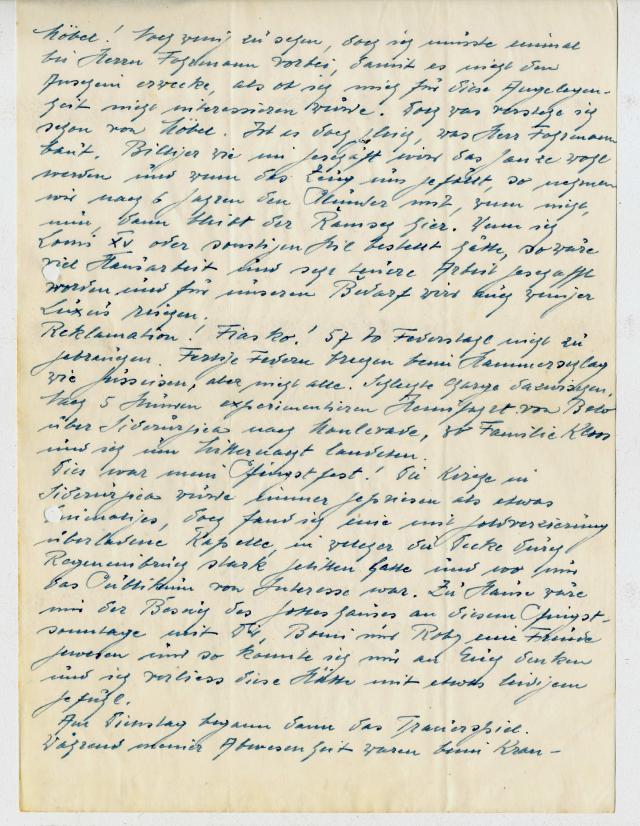 Möbel! Noch wenig zu sehen, doch ich müsste einmal
bei Herrn Fohrmann vorbei, damit es nicht den
Anschein erwecke, als ob ich mich für diese Angelegen-
heit nicht interessieren würde. Doch was verstehe ich
schon von Möbel. Ist es doch gleich, was Herr Fohrmann
baut. Billiger wie im Geschäft wird das Ganze wohl
werden und wenn das Zeug uns gefällt, so nehmen
wir nach 6 Jahren den Plunder mit, wenn nicht,
nun, dann bleibt der Ramsch hier. Wenn ich
Louis XV oder sonstigen Stil bestellt hätte, so wäre
viel Handarbeit und sehr teuere Arbeit geschafft
worden und für unseren Bedarf wird auch weniger
Luxus reichen.
Reklamation! Fiasko! 57 70 Federstahl nicht zu
gebrauchen. Fertige Federn brechen beim Hammerschlag
wie Gusseisen, aber nicht alle. Schlechte Charge dazwischen.
Nach 5 Stunden experimentieren Heimfahrt von Belo
über Siderúrgica nach Monlevade, wo Familie Kloos
und ich um Mitternacht landeten.
Dies war mein Pfingstfest! Die Kirche in
Siderúrgica wurde immer gepriesen als etwas
Einmaliges, doch fand ich eine mit Goldverzierung
überladene Kapelle, in welcher die Decke durch
Regeneinbruch stark gelitten hatte und wo nur
das Publikum von Interesse war. Zu Hause wäre
mir der Besuch des Gotteshauses an diesem Pfingst-
sonntage mit Dir, Bomi und Roby eine Freude
gewesen und so konnte ich nur an Euch denken
und ich verliess diese Stätte mit etwas leidigem
Gefühl.
Am Dienstag begann dann das Trauerspiel.
Während meiner Abwesenheit waren beim Kran-